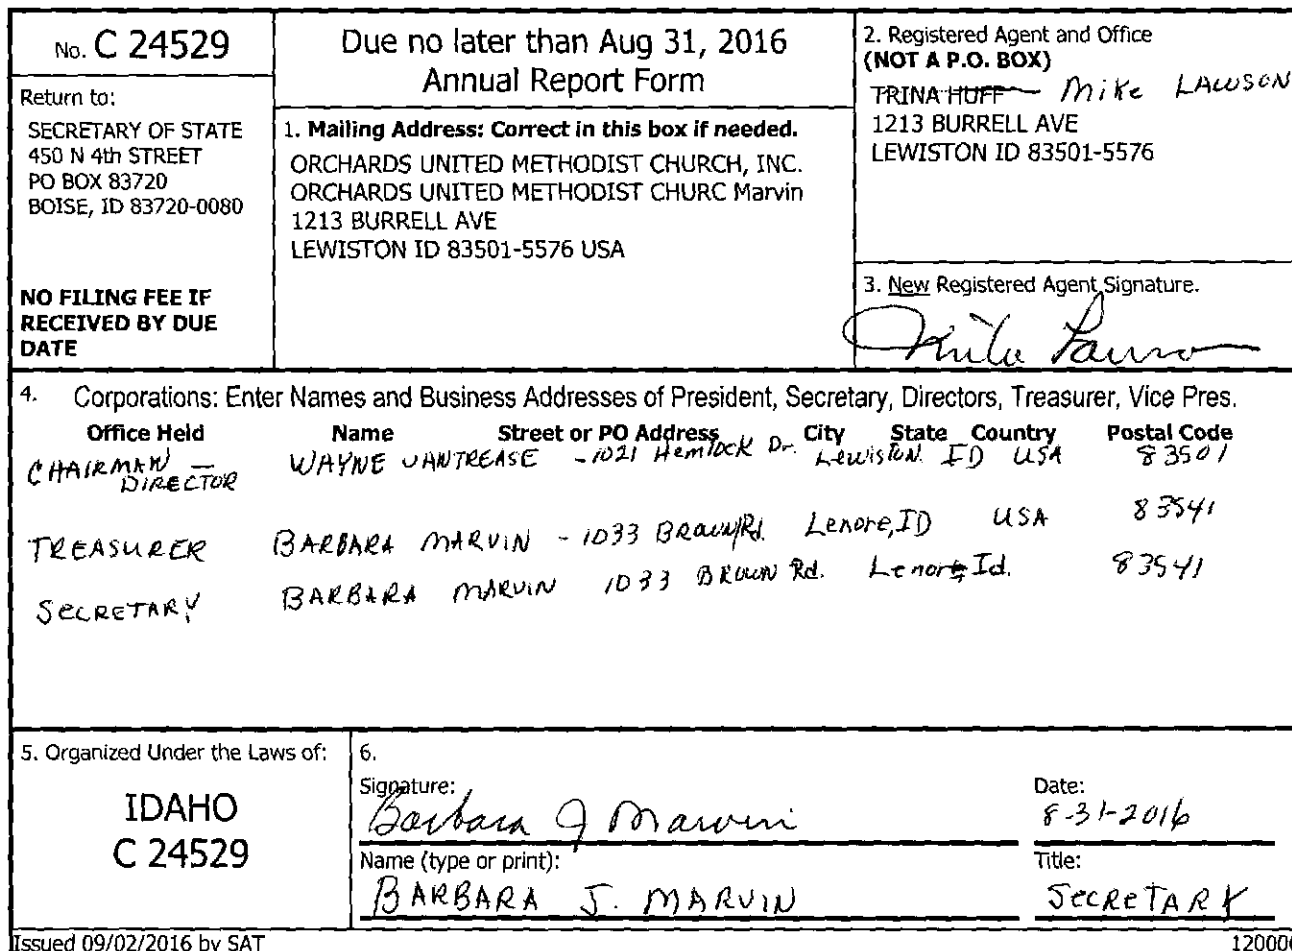 No. C 24529
Return to:
SECRETARY OF STATE
450 N 4th STREET
PO BOX 83720
BOISE, ID 83720-0080
NO FILING FEE IF
RECEIVED BY DUE
DATE
Due no later than Aug 31, 2016
Annual Report Form
1. Mailing Address: Correct in this box if needed.
ORCHARDS UNITED METHODIST CHURCH, INC.
ORCHARDS UNITED METHODIST CHURC Marvin
1213 BURRELL AVE
LEWISTON ID 83501-5576 USA
2. Registered Agent and Office
(NOT A P.O. BOX)
TRINA HUFF Mike LAWSON
1213 BURRELL AVE
LEWISTON ID 83501-5576
3. New Registered Agent Signature.
Mike Lawson
4. Corporations: Enter Names and Business Addresses of President, Secretary, Directors, Treasurer, Vice Pres.
Office Held Name Street or PO Address City State Country Postal Code
CHAIRMAN - WAYNE VANTREASE - 1021 Hemlock Dr. Lewiston ID USA 83501
DIRECTOR
TREASURER BARBARA MARVIN - 1033 BROWN Rd. Lenore, ID USA 83541
SECRETARY BARBARA MARVIN 1033 BROWN Rd. Lenore Id. 83541
5. Organized Under the Laws of:
IDAHO
C 24529
6.
Signature:
Barbara J Marvin
Date:
8-31-2016
Name (type or print):
BARBARA J. MARVIN
Title:
SecRETARY
Issued 09/02/2016 by SAT
120000